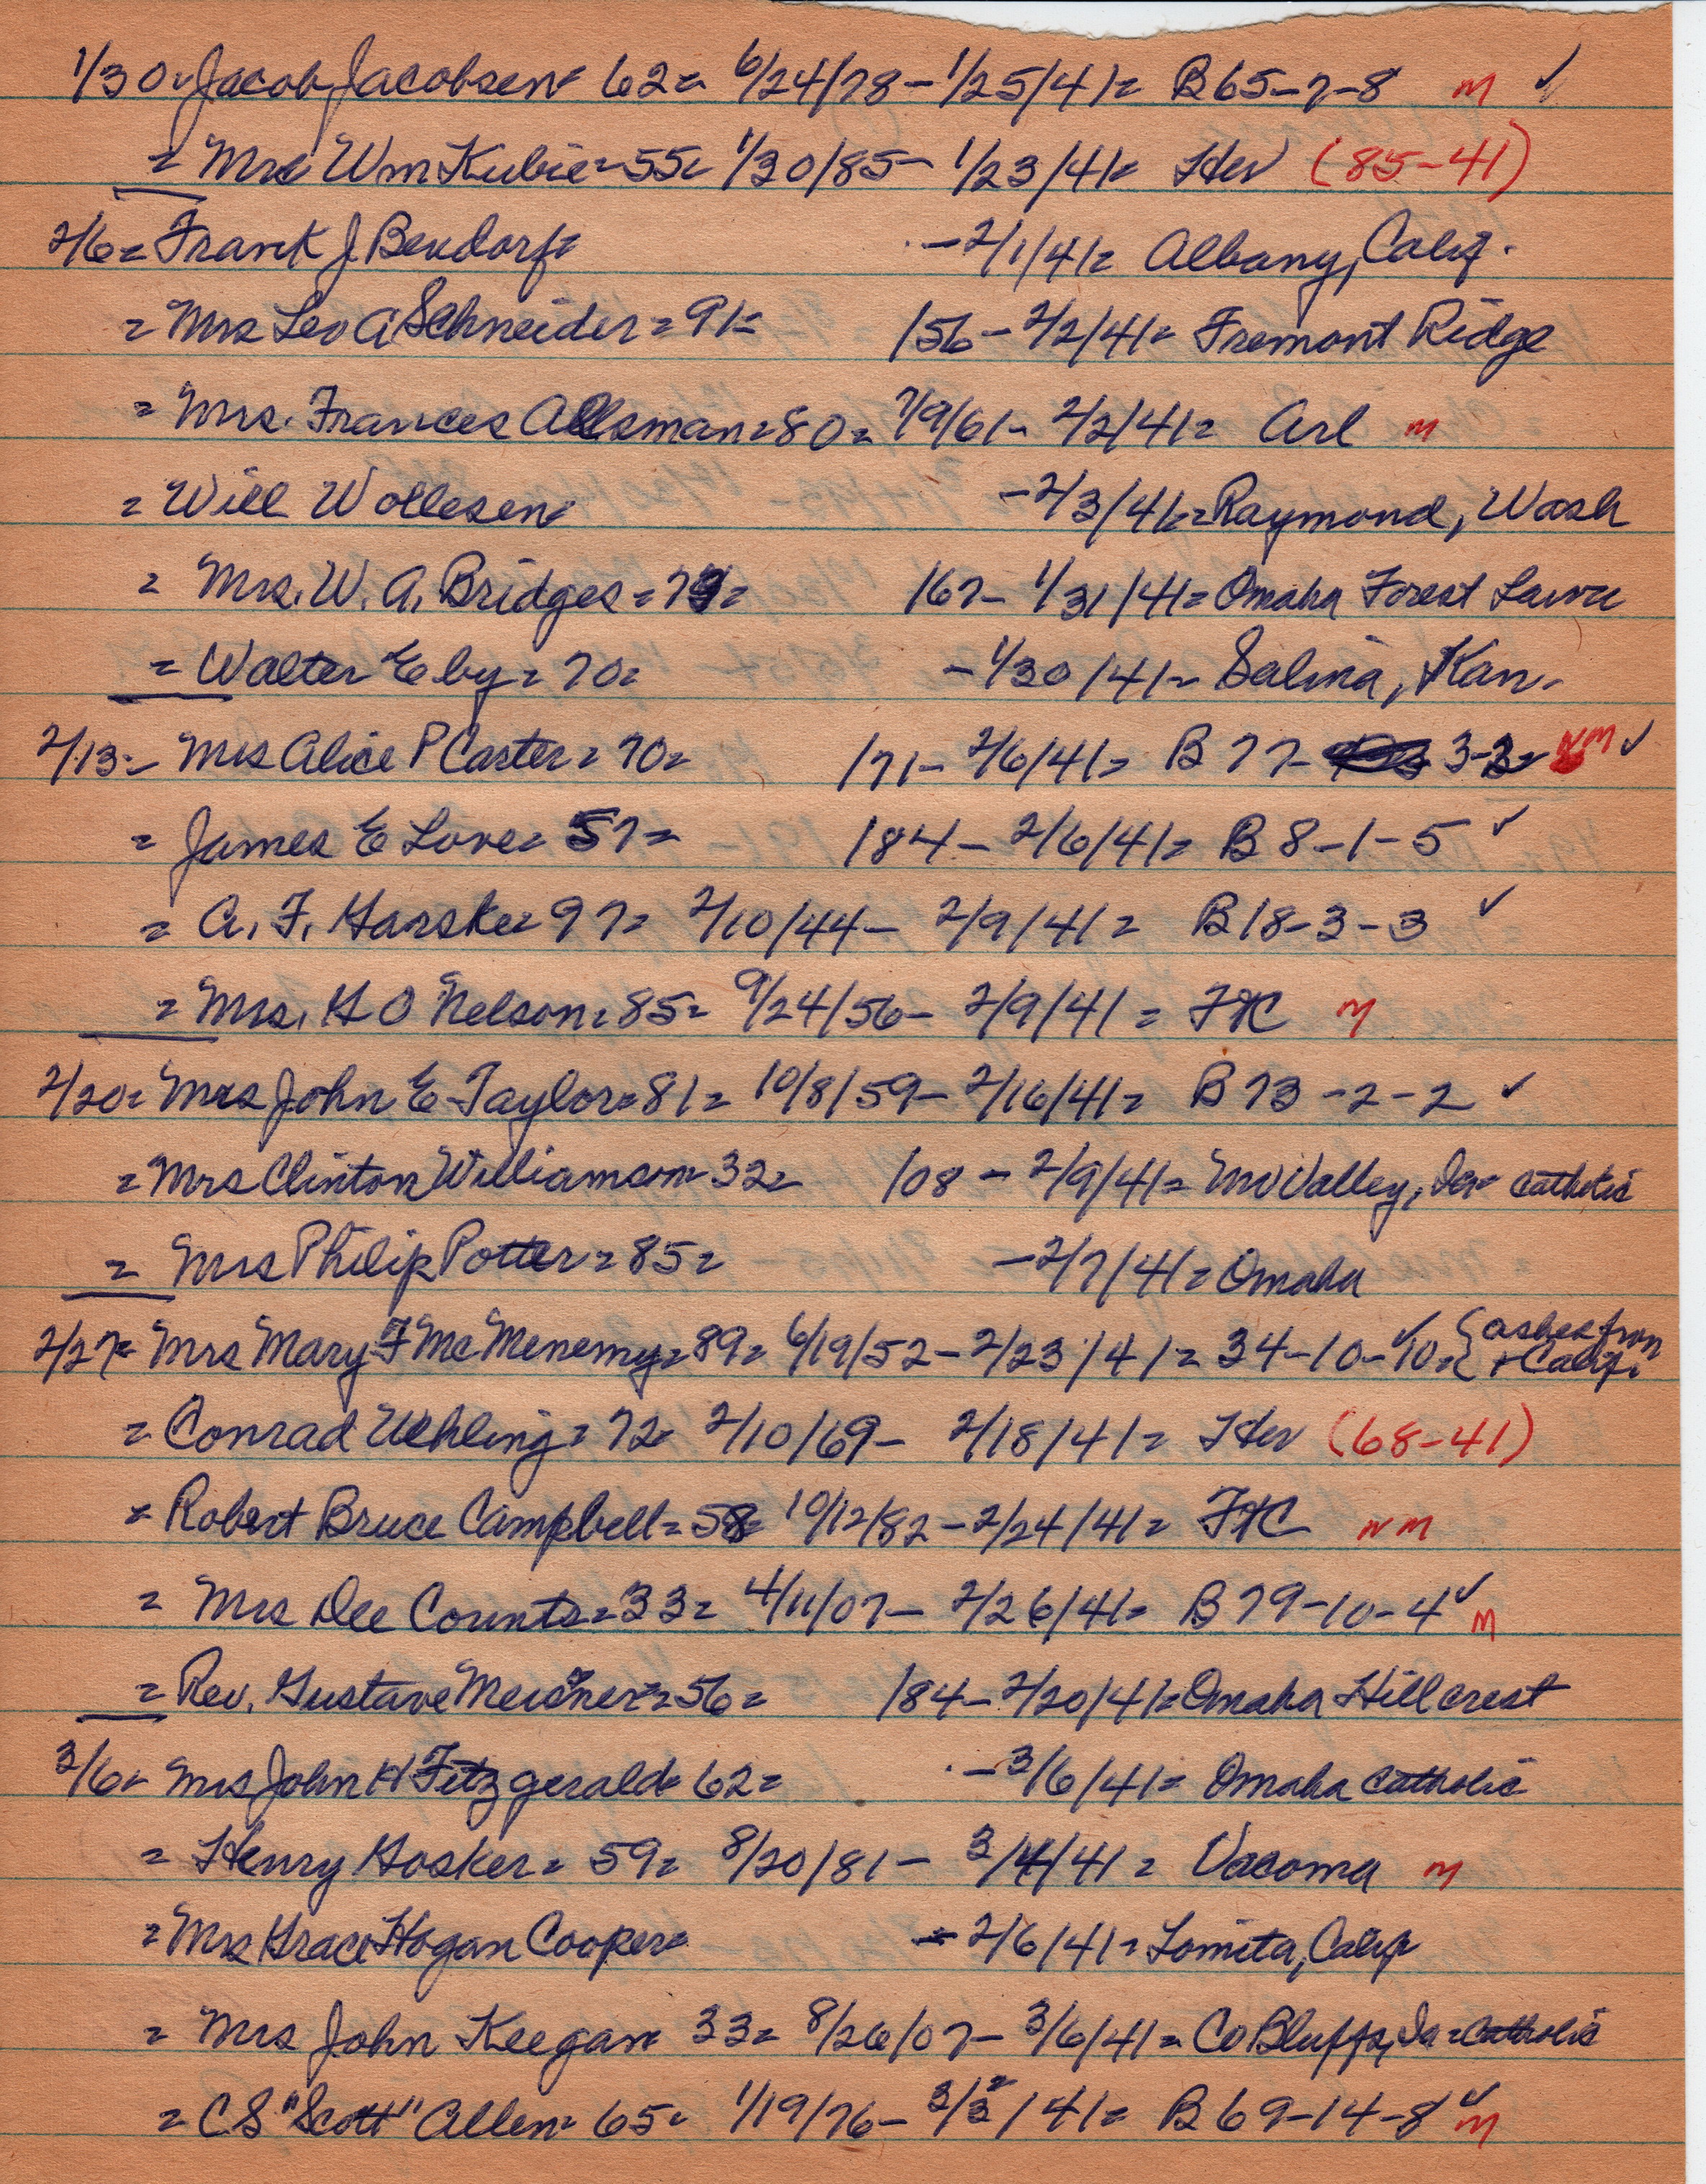 1/30= Jacob Jacobsen= 62= 6/24/78 - 1/25/41= B65-7-8 M ✓
= Mrs Wm Kubie= 55= 1/30/85 - 1/23/41= Her (85-41)
2/6= Frank J Bendorf= - 2/1/41= Albany, Calif.
= Mrs Leo A Schneider= 91= /56 - 2/2/41= Fremont Ridge
= Mrs. Frances Allsman= 80= 7/9/61 - 2/2/41= Arl M
= Will Wollesen= - 2/3/41= Raymond, Wash
= Mrs. W. A. Bridges= 73= /67 - 1/31/41= Omaha Forest Lawn
= Walter Eby= 70= - 1/30/41= Salina, Kan.
2/13= Mrs Alice P Carter= 70= /71 - 2/6/41= B 77- 3-2= NM ✓
= James E Love= 57= /84 - 2/6/41= B 8-1-5 ✓
= A. F. Harske= 97= 2/10/44 - 2/9/41= B18-3-3 ✓
= Mrs. H O Nelson= 85= 9/24/56 - 2/9/41= FtC M
2/20= Mrs John E Taylor= 81= 10/8/59 - 2/16/41= B 73-2-2 ✓
= Mrs Clinton Williamson= 32= /08 - 2/9/41= Mo Valley, Ia= Catholic
= Mrs Philip Potter= 85= - 2/7/41= Omaha
2/27= Mrs Mary F McMenemy= 89= 6/19/52 - 2/23/41= 34-10-10= ✓ {ashes from Calif.
= Conrad Uehling= 72= 2/10/69 - 2/18/41= Her (68-41)
= Robert Bruce Campbell= 58= 10/12/82 - 2/24/41= FtC NM
= Mrs Dee Counts= 33= 4/11/07 - 2/26/41= B 79-10-4 ✓ M
= Rev. Gustave Meisner= 56= /84 - 2/20/41= Omaha Hillcrest
3/6= Mrs John H Fitzgerald= 62= - 3/6/41= Omaha Catholic
= Henry Hosker= 59= 8/20/81 - 3/4/41= Vacoma M
= Mrs Grace Hogan Cooper= - 2/6/41= Lomita, Calif
= Mrs John Keegan= 33= 8/26/07 - 3/6/41= Co Bluffs, Ia= Catholic
= C S "Scott" Allen= 65= 1/19/76 - 3/2/41= B 69-14-8 ✓ M